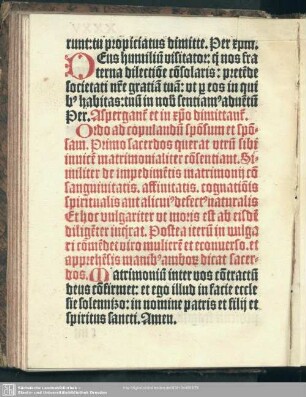 runt: tu propiciatus dimitte. Per xpm.
Deus humiliū visitator: q̄ nos fra
terna dilectiōe cōsolaris: pretēde
societati nr̄e gratiā tuā: vt ꝑ eos in qui
bꝰ habitas: tuū in nob̄ sentiamꝰ aduētū
Per. Aspergant̄ et in xp̄o dimittant̄.
Ordo ad copulandū spōsum et spō
sam. Primo sacerdos querat vtrū sibi
inuicē matrimonialiter cōsentiant. Si
militer de impedimētis matrimonij cō
sanguinitatis. affinitatis. cognatiōis
spiritualis aut alicuiꝰ defectꝰ naturalis
Et hoc vulgariter vt moris est ab eisdē
diligēter inq̄rat. Postea iterū in vulga
ri cōmēdet viro mulierē et econuerso. et
apprehēsis manibꝰ amboꝝ dicat sacer
dos. Matrimoniū inter vos cōtractū
deus cōfirmet: et ego illud in facie eccle
sie solennizo: in nomine patris et filij et
spiritus sancti. Amen.